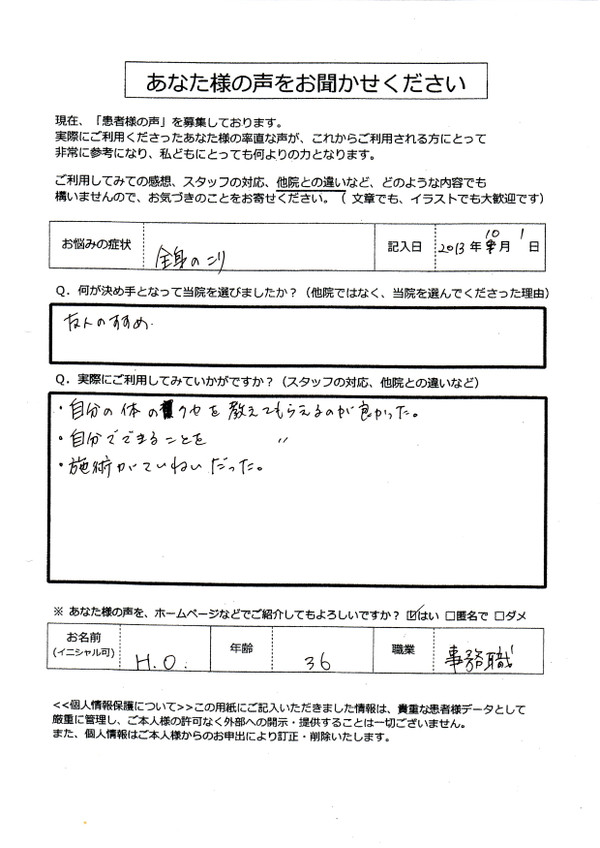 あなた様の声をお聞かせください
現在、「患者様の声」を募集しております。
実際にご利用くださったあなた様の率直な声が、これからご利用される方にとって
非常に参考になり、私どもにとっても何よりの力となります。
ご利用してみての感想、スタッフの対応、他院との違いなど、どのような内容でも
構いませんので、お気づきのことをお寄せください。（文章でも、イラストでも大歓迎です）
お悩みの症状 全身のこり 記入日 2013年10月1日
Q．何が決め手となって当院を選びましたか？（他院ではなく、当院を選んでくださった理由）
友人のすすめ.
Q．実際にご利用してみていかがですか？（スタッフの対応、他院との違いなど）
・自分の体のクセを教えてもらえるのが良かった。
・自分でできることを 〃
・施術がていねいだった。
※ あなた様の声を、ホームページなどでご紹介してもよろしいですか？ ☑はい □匿名で □ダメ
お名前 (イニシャル可) H.O. 年齢 36 職業 事務職
<<個人情報保護について>>この用紙にご記入いただきました情報は、貴重な患者様データとして
厳重に管理し、ご本人様の許可なく外部への開示・提供することは一切ございません。
また、個人情報はご本人様からのお申出により訂正・削除いたします。